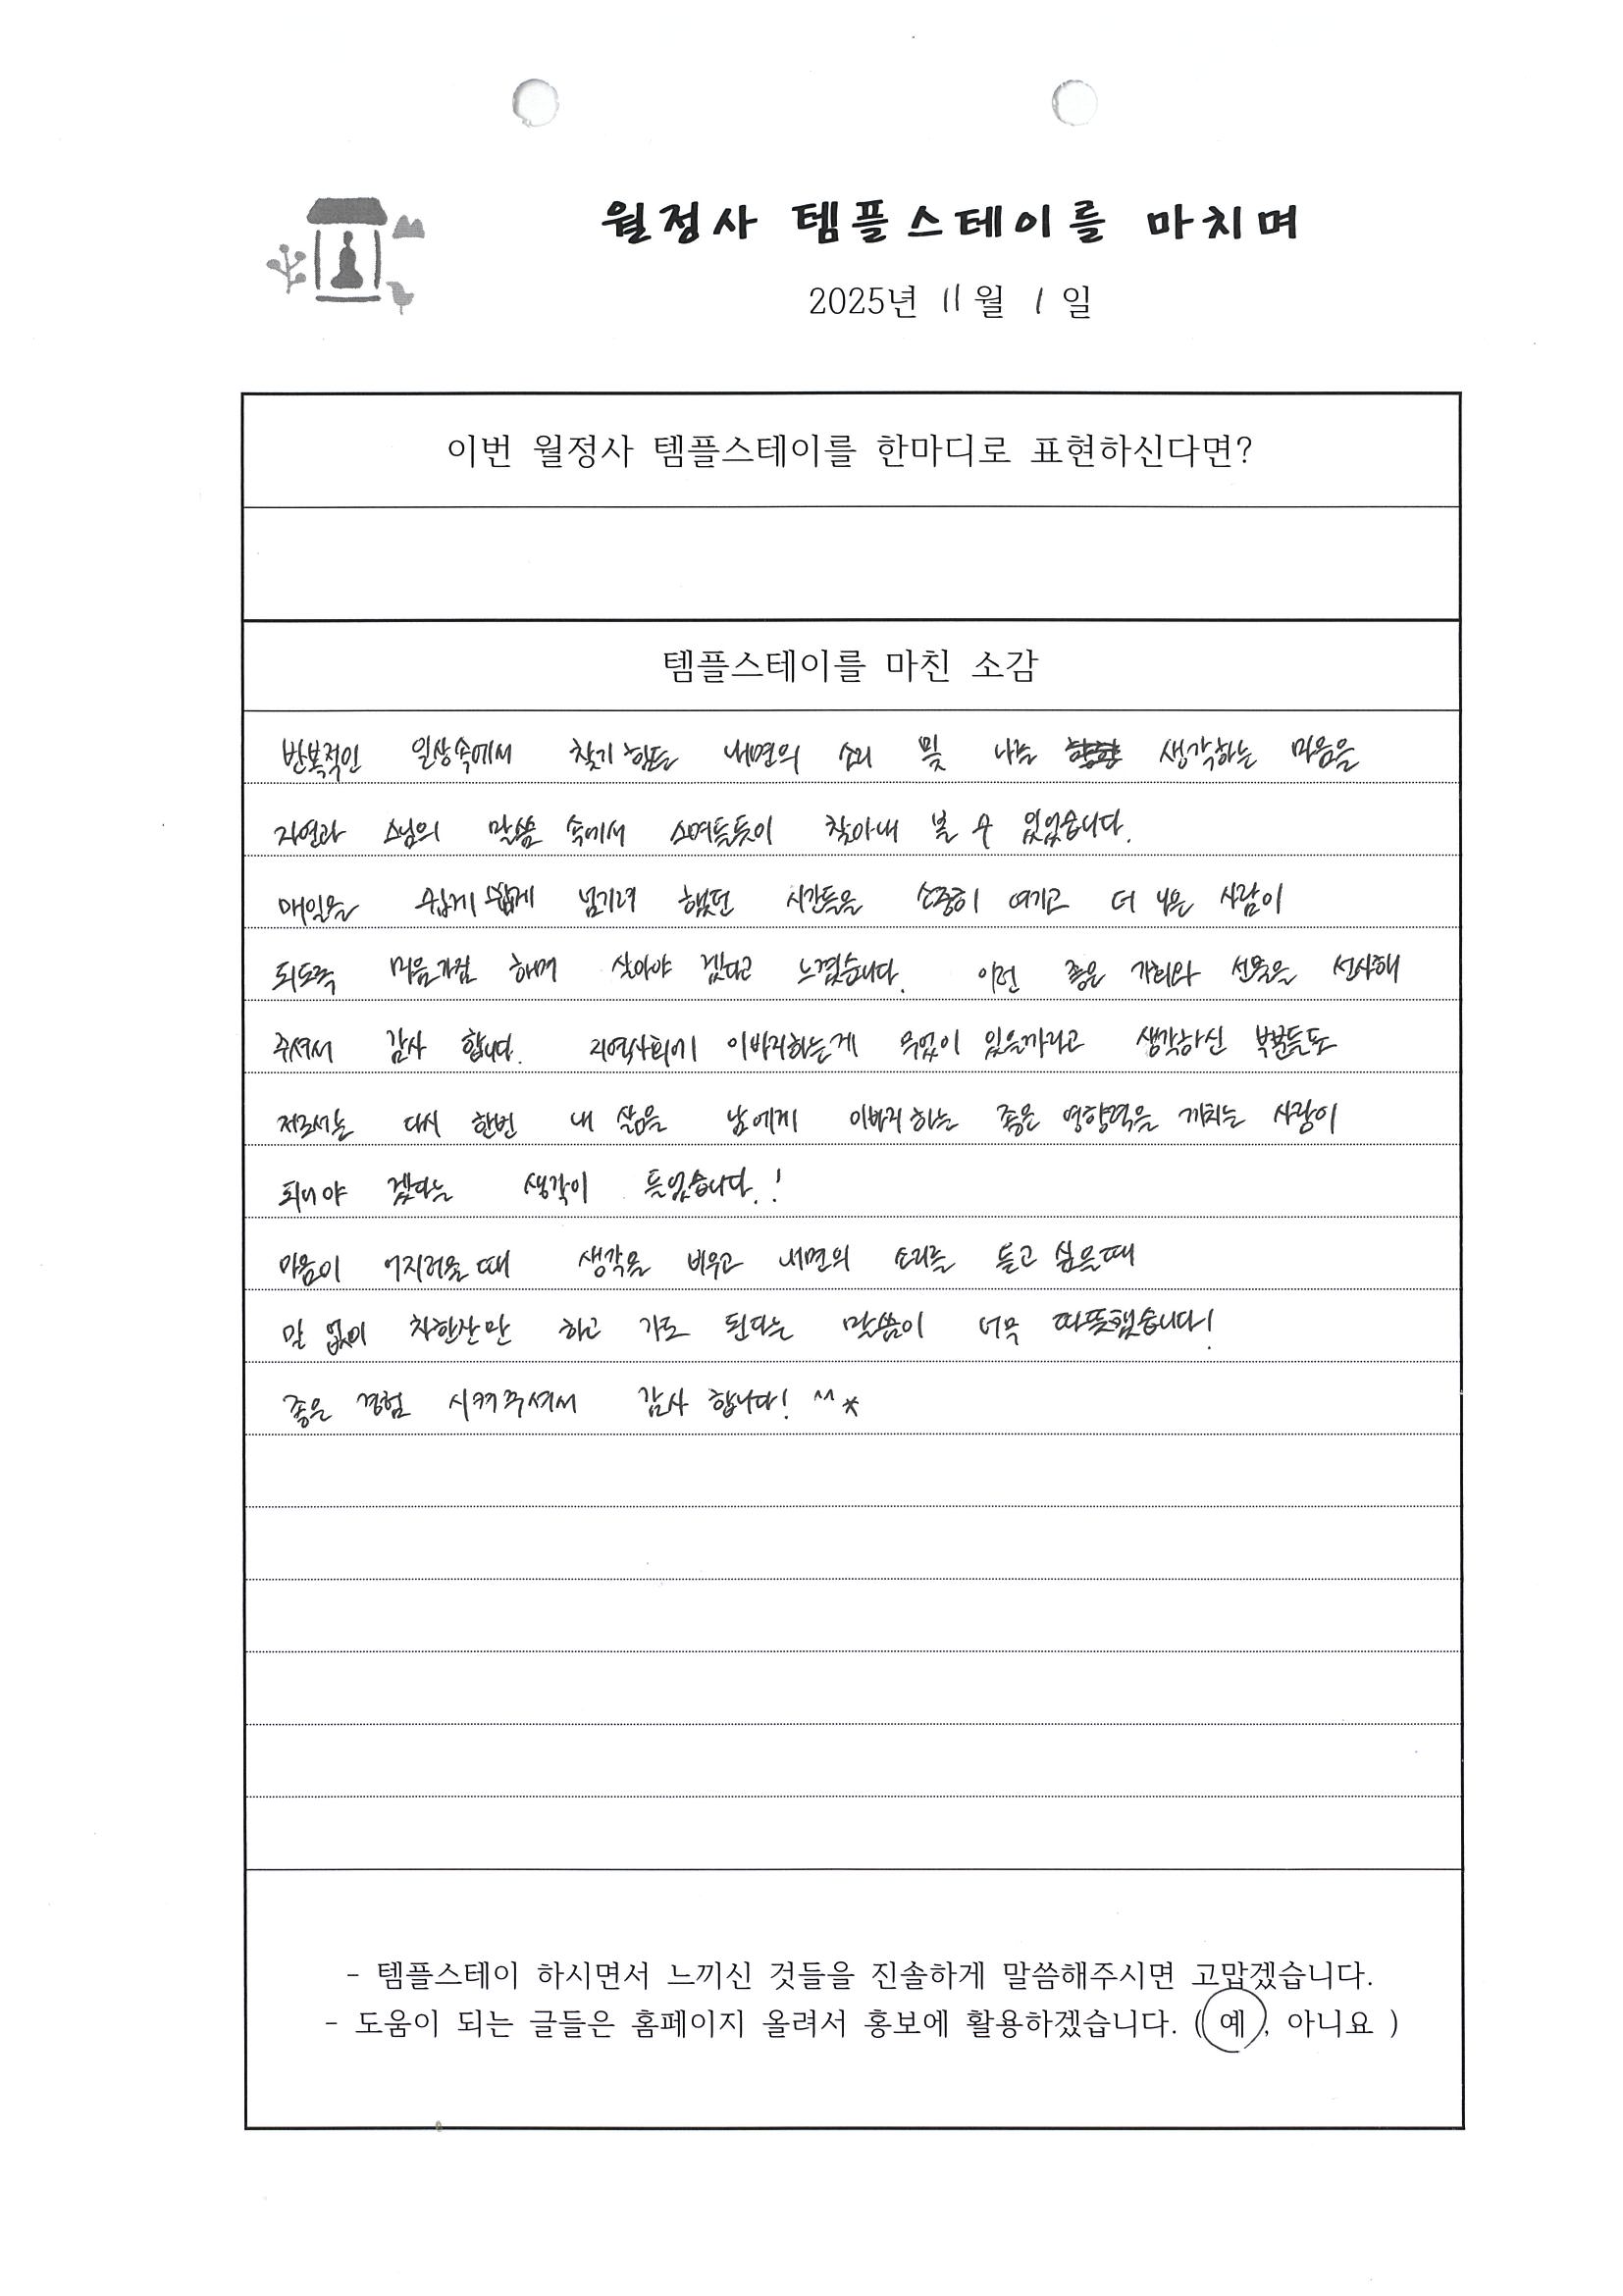 월정사 템플스테이를 마치며
2025년 11월 1일
이번 월정사 템플스테이를 한마디로 표현하신다면?
템플스테이를 마친 소감
반복적인 일상속에서 찾기 힘든 내면의 소리 및 나를 생각하는 마음을
자연과 스님의 말씀 속에서 스며들듯이 찾아내 볼 수 있었습니다.
매일을 쉽게 쉽게 넘기려 했던 시간들을 소중히 여기고 더 나은 사람이
되도록 마음가짐 하며 살아야 겠다고 느꼈습니다. 이런 좋은 자리와 선물을 선사해
주셔서 감사 합니다. 지역사회에 이바지하는게 무엇이 있을까라고 생각하신 부분들도
저로서는 다시 한번 내 삶을 남에게 이바지 하는 좋은 영향력을 끼치는 사람이
되어야 겠다는 생각이 들었습니다.!
마음이 어지러울 때 생각을 비우고 내면의 소리를 듣고 싶을때
말 없이 차한잔만 하고 가도 된다는 말씀이 너무 따뜻했습니다!
좋은 경험 시켜주셔서 감사 합니다! ^^*
- 템플스테이 하시면서 느끼신 것들을 진솔하게 말씀해주시면 고맙겠습니다.
- 도움이 되는 글들은 홈페이지 올려서 홍보에 활용하겠습니다. ( 예 , 아니요 )